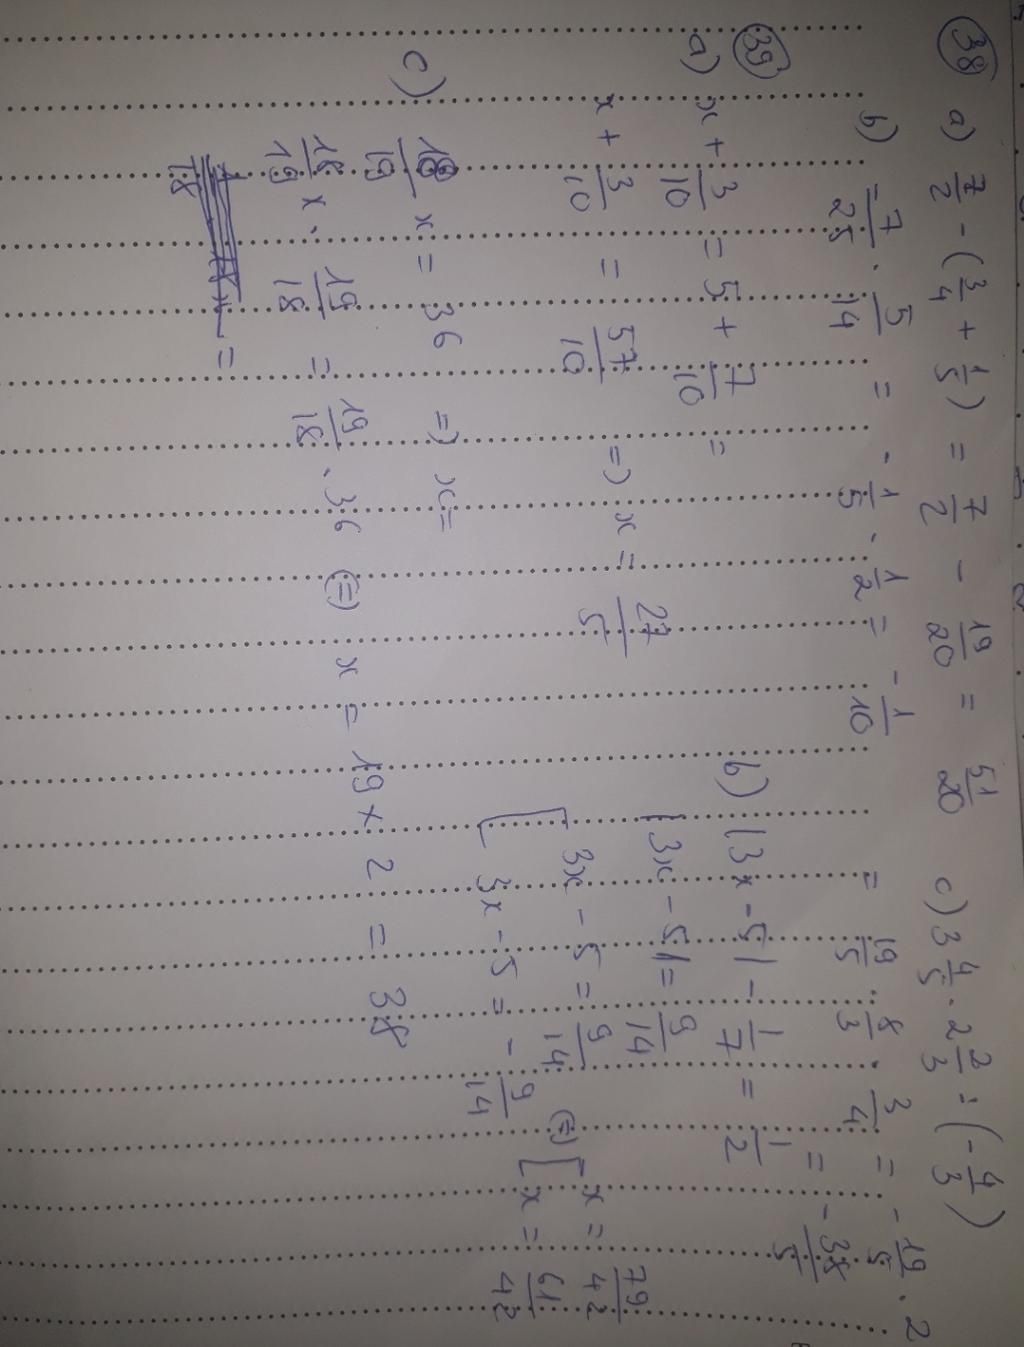 38 a) 7/2 - (3/4 + 1/5) = 7/2 - 19/20 = 51/20
b) -7/25 . 5/14 = -1/5 . 1/2 = -1/10
c) 3 4/5 . 2 2/3 : (-4/3)
= 19/5 . 8/3 . 3/4 = -19/5 . 2
= -38/5
39
a) x + 3/10 = 5 + 7/10 =
x + 3/10 = 57/10 => x = 27/5
b) |3x - 5| - 1/7 = 1/2
|3x - 5| = 9/14
[ 3x - 5 = 9/14
[ 3x - 5 = -9/14 (=) [ x = 79/42
x = 61/42
c) 18/19 x = 36 => x =
18/19 x . 19/18 = 19/18 . 36 (=) x = 19 x 2 = 38
=